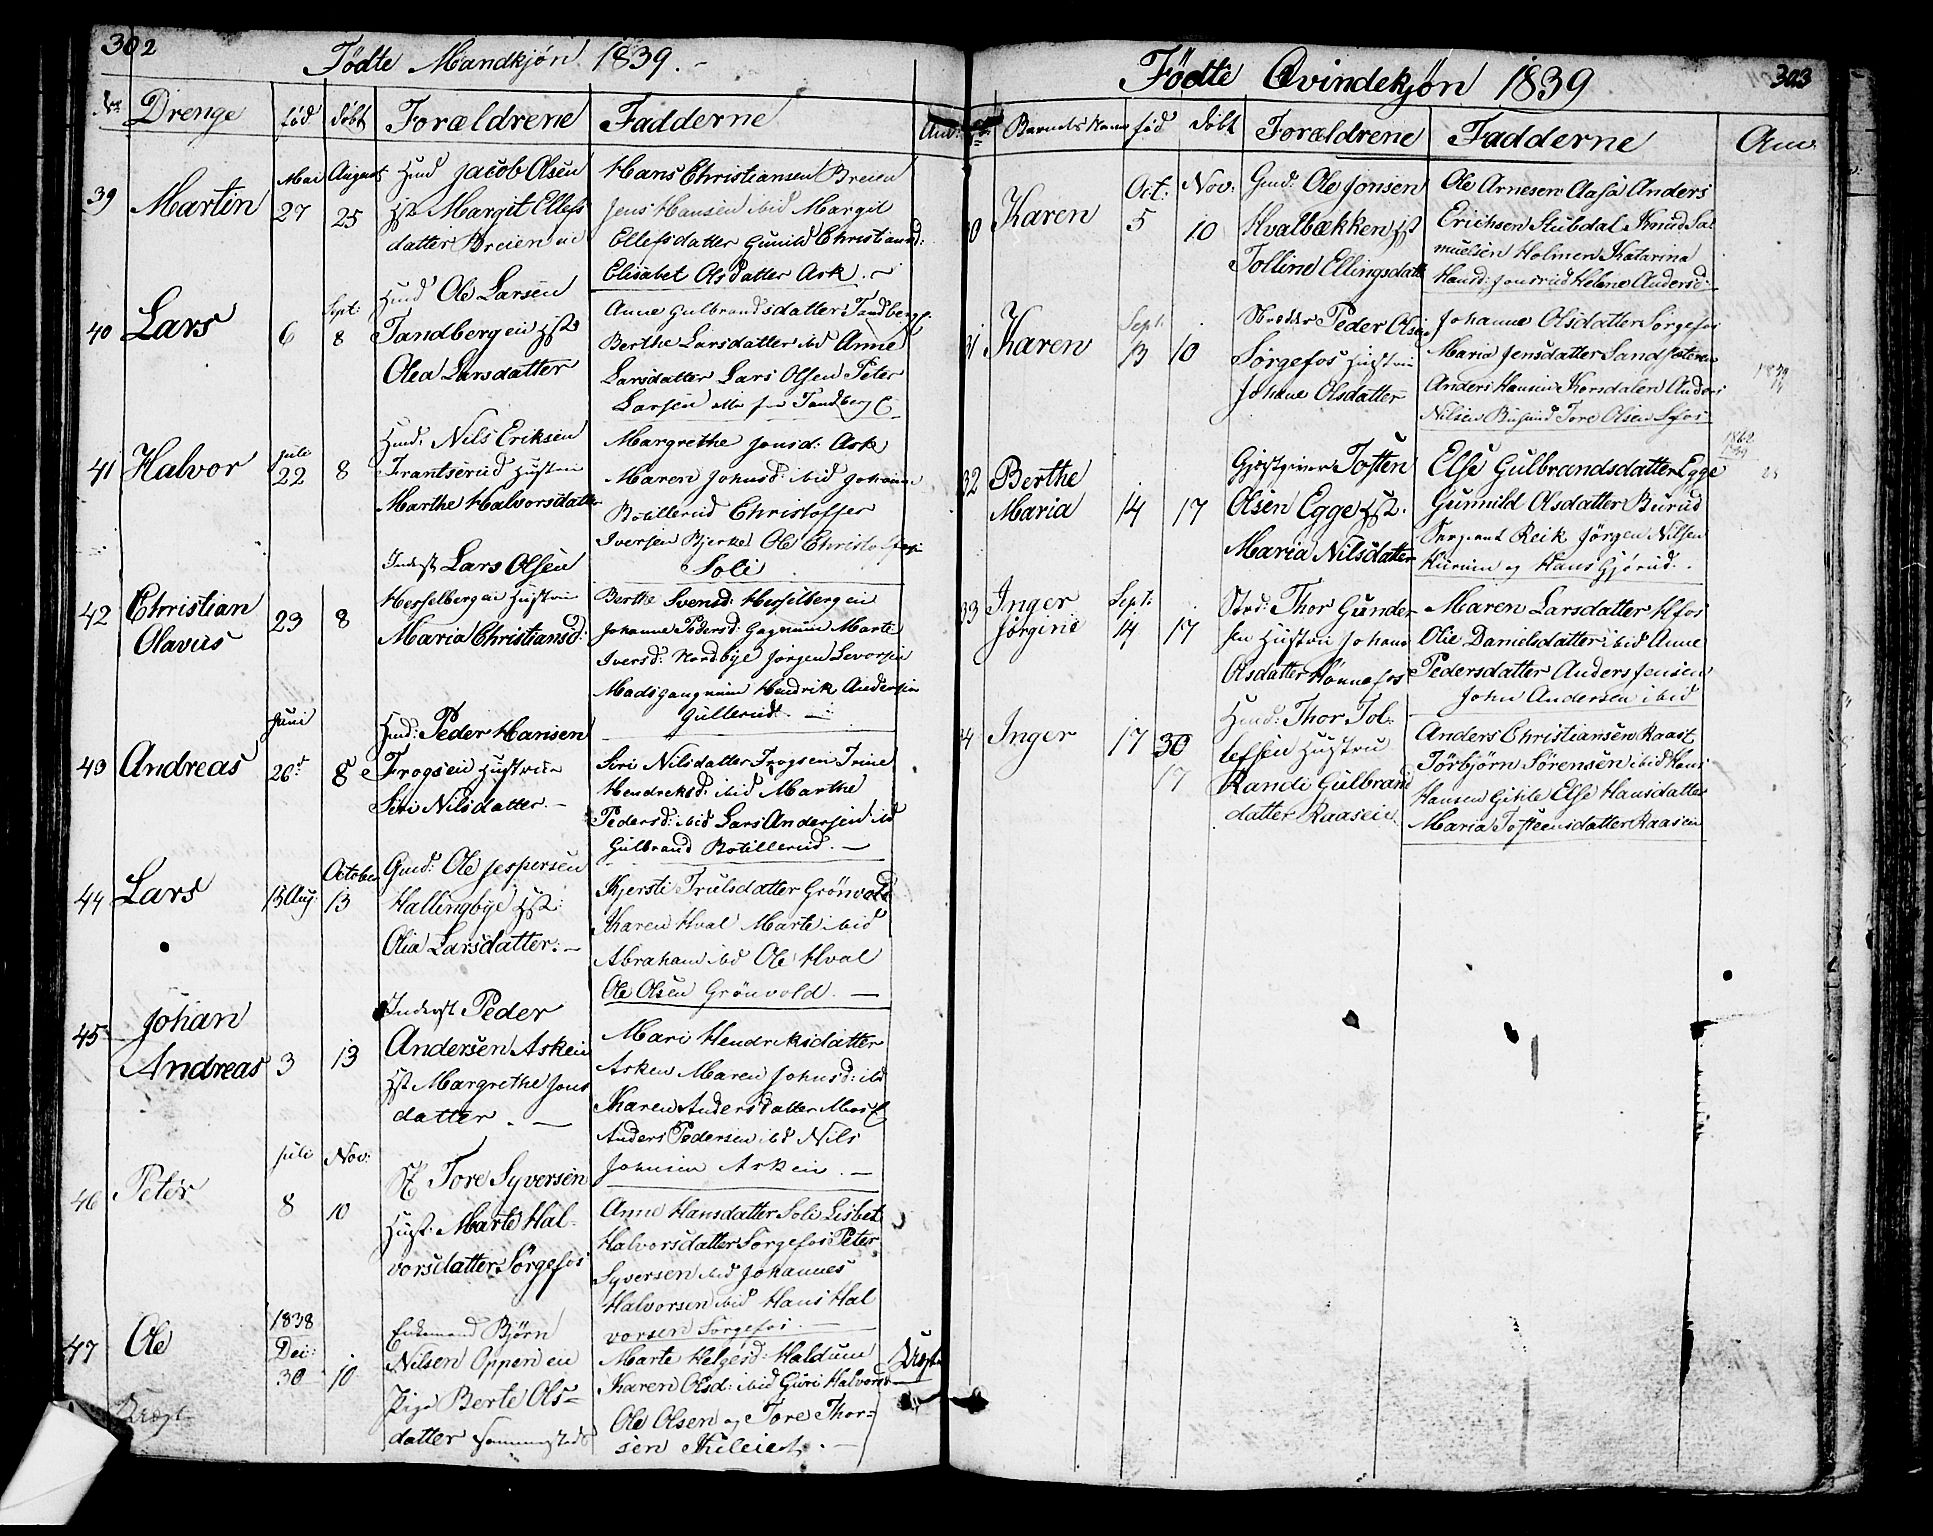 302
Födte Mandkjön 1839.
Nr Drenge föd döbt Forældrene Fadderne Anv:
39 Martin Mai 27 August 25
Huusmd Jacob Olsen
Hst Margit Ellefs
datter Breien
Hans Christiansen Breien
Jens Hansen ibid Margit
Ellefsdatter Gunild Christiansd:
Elisabet Olsdatter Ask.
40 Lars 6 Sept: 8
Ole Larsen
Tandberg ei Hst
Olea Larsdatter
Anne Gulbrandsdatter Tandberg
Berthe Larsdatter ibid Anne
Larsdatter Lars Olsen Peter
Larsen alle fra Tandberg
41 Halvor Juli 22 8
Nils Eriksen
Frantserud Hustrue
Marthe Halvorsdatter
Margrethe Jonsd: Ask
Maren Johnsd: ibid Johan
Botillerud Christoffer
Iversen Bjerke Ole Christoffersen
Soli
42 Christian
Olavus 23 8
Inderst Lars Olsen
Hesselberg ei Hustrue
Maria Christiansd:
Berthe Svensd: Hesselberg ei
Johanne Pedersd: Gagnum Marte
Iversd: Nordbye Jörgen Sevorsen
Mads Gaagnum Hendrik Andersen
Gullerud.
43 Andreas Juni 26 8
Peder Hansen
Frogs ei Hustrue
Siri Nilsdatter.
Siri Nilsdatter Frogsei Trine
Hendreksd: ibid Marthe
Pedersd: ibid Lars Andersen ibid
Gulbrand Botillerud.
44 Lars 13 Aug: October 13
Gmd: Ole Jespersen
Hallingbye Hst:
Olia Larsdatter.
Kjersti Trulsdatter Grönvold
Karen Hval Marte ibid
Abraham ibid Ole Hval
Ole Olsen Grönvold.
45 Johan
Andreas 3 13
Inderst Peder
Andersen Askei
Hst Margrethe Jons
datter.
Mari Hendriksdatter
Asken Maren Johnsd: ibd
Karen Andersdatter
Anders Pedersen ibd Nils
Johnsen Askei.
46 Peter Juli 8 Nov: 10
Tore Syversen
Hust: Marte Hal-
vorsdatter Sörgefos
Anne Hansdatter Soli Lisbet
Halvorsdatter Sörgefos Peter
Syversen ibid Johannes
Halvorsen ibid Hans Hal
vorsen Sörgefos.
47 Ole 1838 Dec: 30 10
Enkemand Björn
Nilsen Oppen ei
Pige Berte Ols-
datter sammesteds
Marte Helgesd: Haldum
Karen Olsd: ibid Guri Halvorsd
Ole Olsen og Tore Thor-
sen Kileiet.
Uægt
Uægt
303
Födte Qvindekjön 1839
Barnets Navn föd döbt Forældrene Fadderne Anv.
30 Karen Oct: 5 Nov: 10
Gmd: Ole Jonsen
Hvalbækken Hst
Tolline Ellingsdatt
Ole Arnesen Aasa Anders
Erichsen Stubdal Knud Sal
muelsen Holmen Katarina
Hansd: Jonsrud Helene Andersd
31 Karen Sept: 13 10
Peder Olsen
Sörgefos Hustrue
Johane Olsdatter
Johanne Olsdatter Sörgefos
Maria Jensdatter
Anders Hansen Korsdalen Anders
Nilsen Tore Olsen Sfos
32 Berthe
Maria 14 17
Gjestgiver Tosten
Olsen Egge Hst.
Maria Nilsdatter
Else Gulbrandsdatter Egge
Gunnild Olsdatter Burud
Sergeant Reik Jörgen Nilsen
Hurum og Hans Gjörud.
33 Inger
Jörgine Sept: 14 17
Thor Gunder
sen Hustru Johane
Olsdatter Hönnefos
Maren Larsdatter Hfos
Olie Danielsdatter ibid Anne
Pedersdatter Anders Jensen
John Andersen ibid
34 Inger 17 30
17
Thor Tol-
lefsen Hustru
Randi Gulbrand
datter Raasen
Anders Christiansen Raasen
Törbjörn Sörensen ibid Hans
Hansen Else Hansdatter
Maria Tosteensdatter Raasen